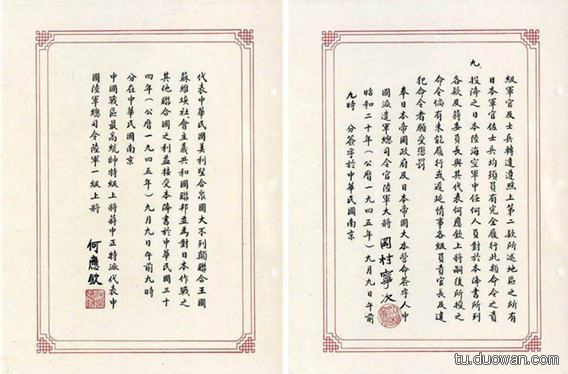 級軍官及士兵轉達遵照上第二款所述地區之所有
日本軍官佐士兵均須負有完全履行此類命令之責
九、投降之日本陸海空軍中任何人員對於本降書所列
各款及蔣委員長與其代表何應欽上將嗣後所授之
命令倘有未能履行或遲延情事各級負責官長及違
犯命令者願受懲罰
奉日本帝國政府及日本帝國大本營命簽字人中
國派遣軍總司令官陸軍大將 岡村寧次
昭和二十年(公曆一九四五年)九月九日午前
九時 分簽字於中華民國南京
代表中華民國美利堅合衆國大不列顛聯合王國
蘇維埃社會主義共和國聯邦並為對日本作戰之
其他聯合國之利益接受本降書於中華民國三十
四年(公曆一九四五年)九月九日午前九時
分在中華民國南京
中國戰區最高統帥特級上將蔣中正特派代表中
國陸軍總司令陸軍一級上將
何應欽
tu.duowan.com